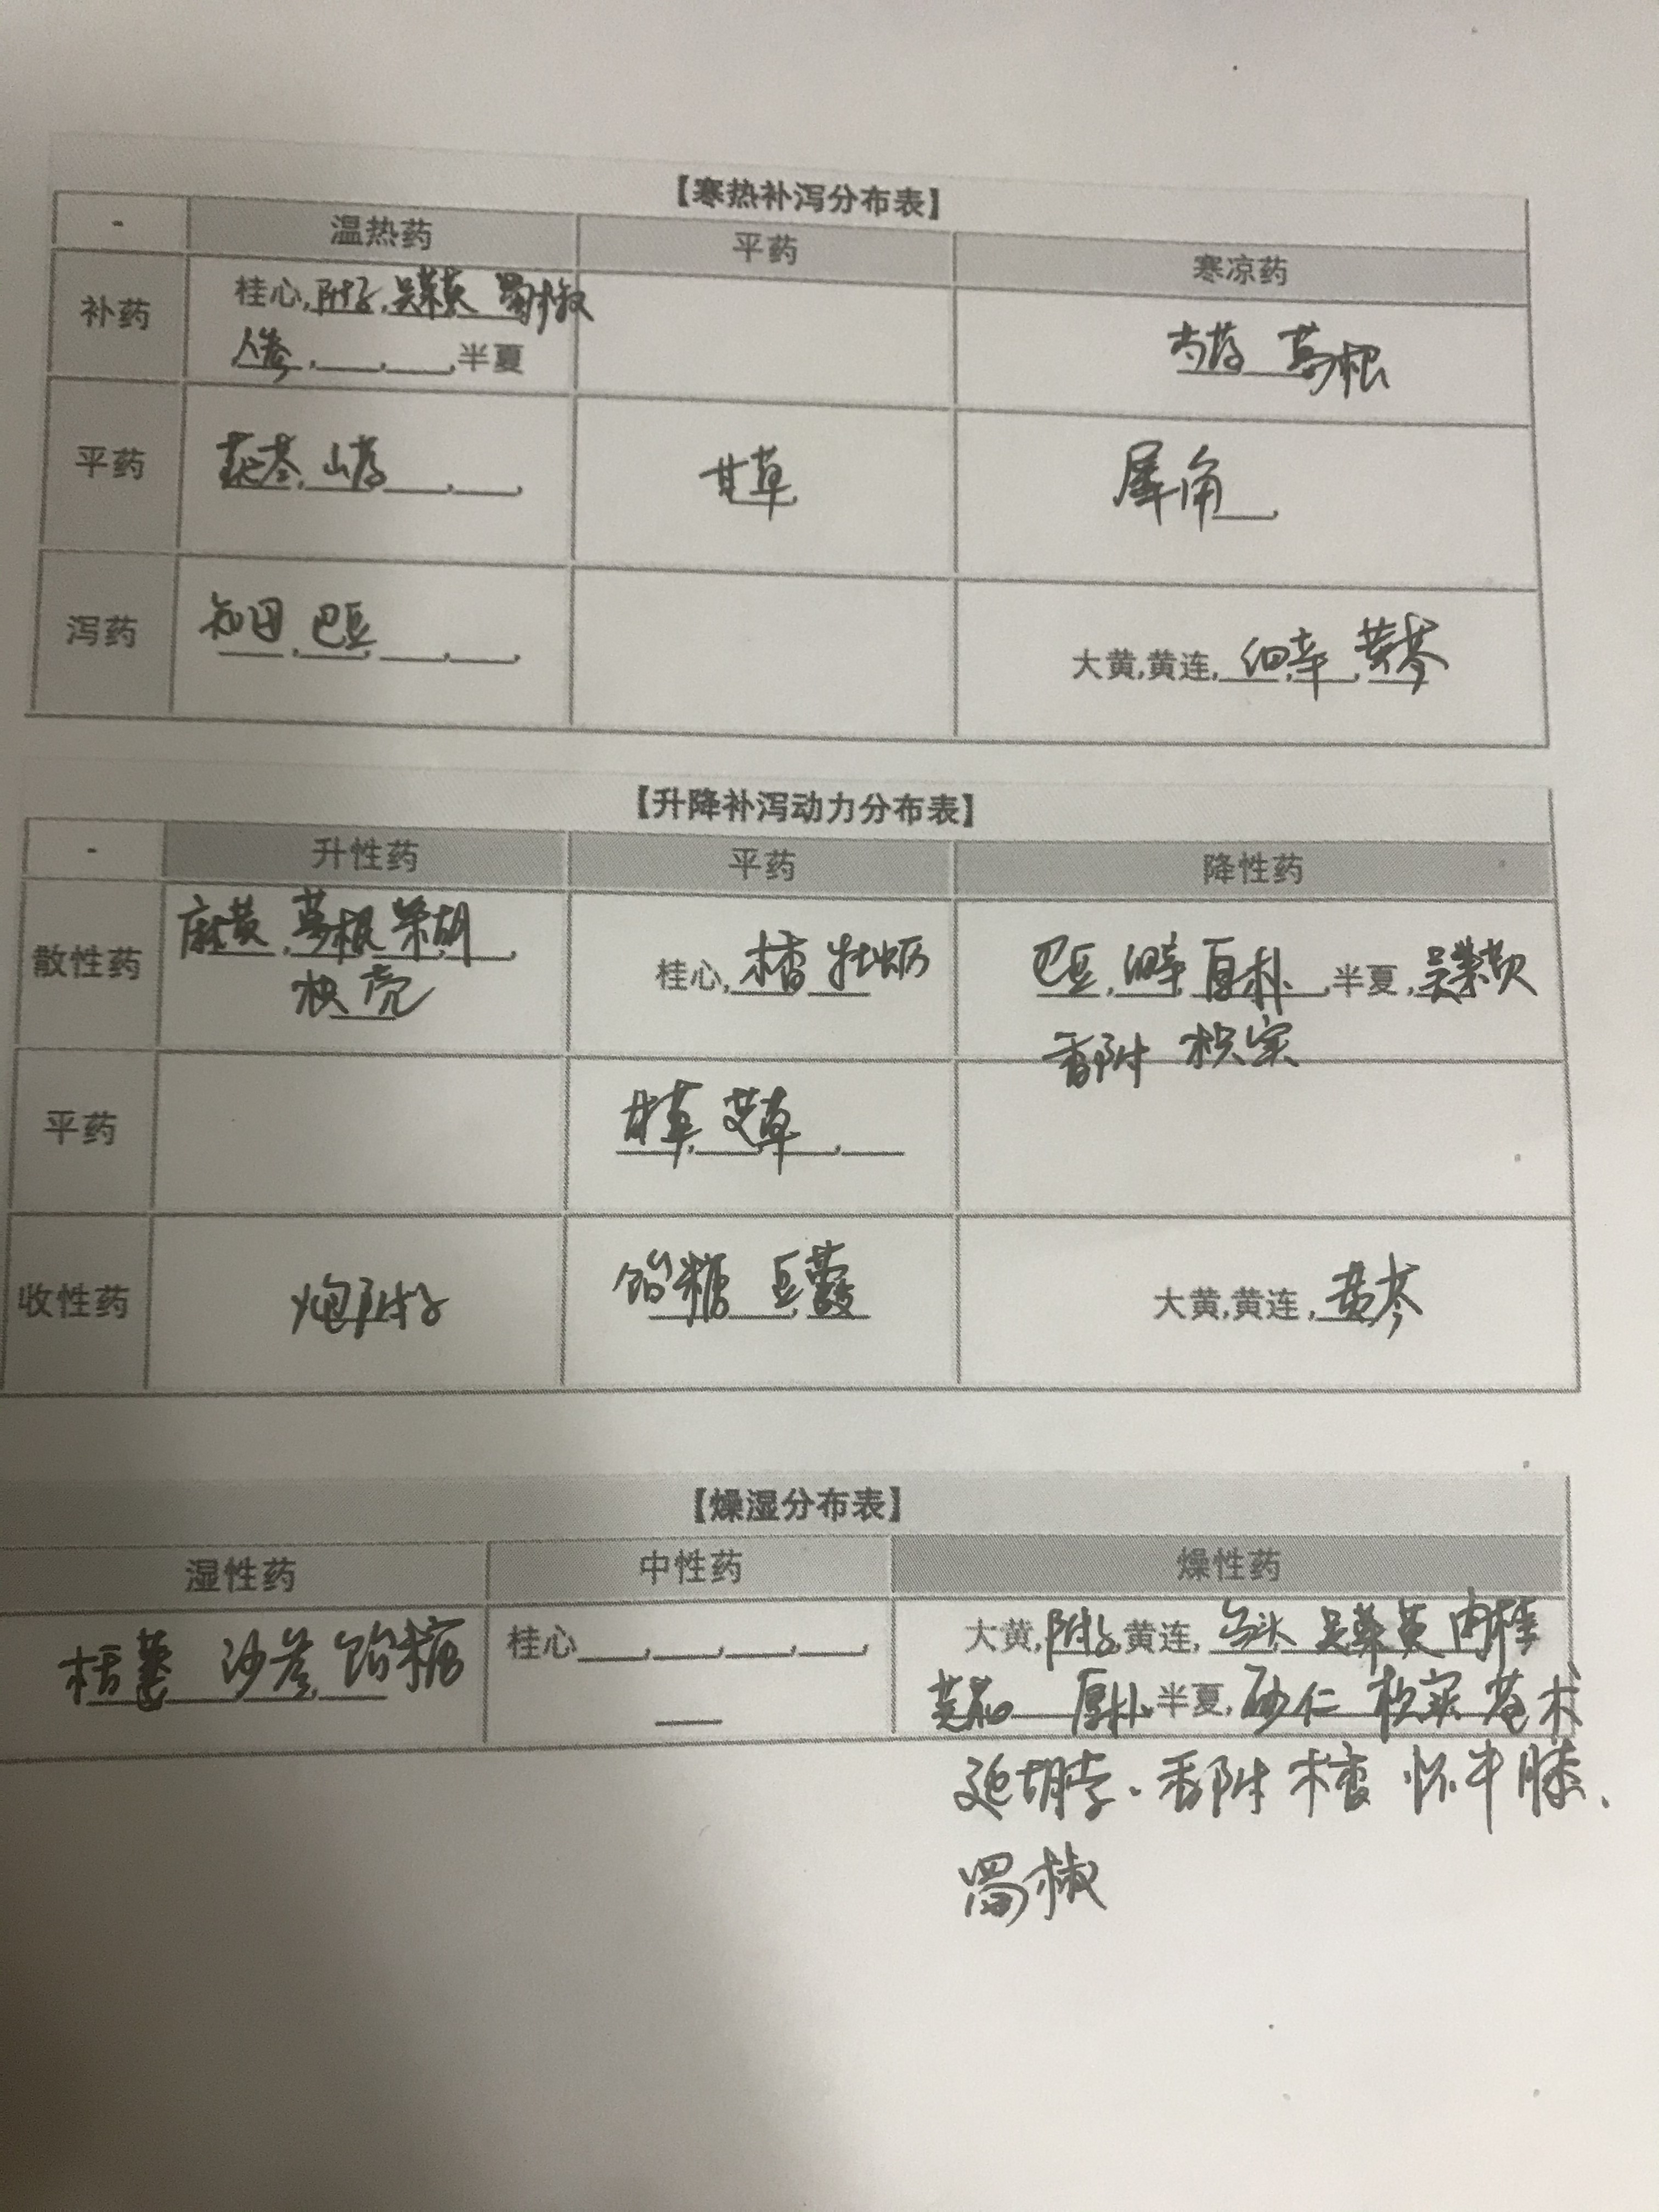 【寒热补泻分布表】
- 温热药 平药 寒凉药
补药 桂心,附子,吴茱萸 蜀椒
人参,___,___,半夏
芍药 葛根
平药 茯苓,山药 甘草 犀角
泻药 知母,巴豆 大黄,黄连,细辛,黄芩
【升降补泻动力分布表】
- 升性药 平药 降性药
散性药 麻黄,葛根 柴胡
枳壳
桂心,木香 牡蛎
巴豆,细辛,厚朴,半夏,吴茱萸
香附 枳实
平药 甘草,艾草
收性药 炮附子 饴糖 豆蔻 大黄,黄连,黄芩
【燥湿分布表】
湿性药 中性药 燥性药
栝蒌 沙参 饴糖 桂心
大黄,附子,黄连,乌头 吴茱萸 肉桂
厚朴,半夏,砂仁 枳实 苍术
延胡索、香附 木香 怀牛膝、
蜀椒